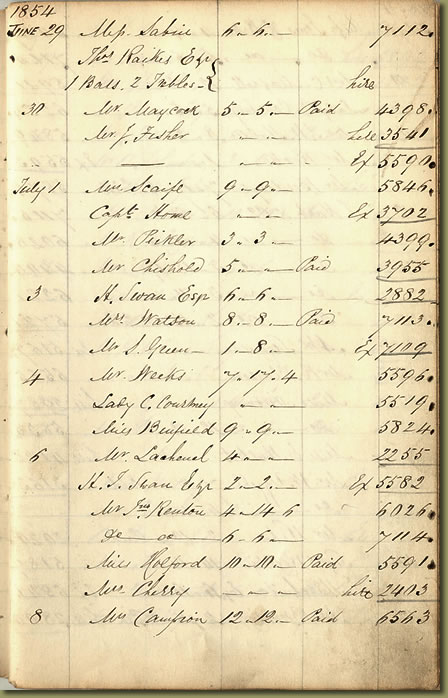 1854
June 29 Miss Sabin 6 - 6 - 7112
Thos Raikes Esqr
1 Bass. 2 Trebles - hire
30 Mr Maycock 5 - 5 - Paid 4398
Mr J. Fisher " " - hire 3541
— " " - Ex 5590
July 1 Scaife 9 - 9 - 5846
Capt. Home " " - Ex 3702
Pickler 3 - 3 - 4399
Mr Chishold 5 " - Paid 3955
3 H. Swan Esqr 6 - 6 - 2882
Mrs Watson 8 - 8 - Paid 7113
S. Green - 1 - 8 - Ex 7109
4 Mr Weeks 7 - 17 - 4 5596
Lady C. Courtney " " - 5519
Miss Binfield 9 - 9 - 5824
6 Mr Lachenal 4 " - 2255
H. J. Swan Esqr 2 - 2 - Ex 5582
Mr Jno Renton 4 - 14 - 6 6026
do do 6 - 6 - 7114
Miss Holford 10 - 10 - Paid 5591
Mrs Cherry " " - hire 2403
8 Mrs Campion 12 - 12 - Paid 6563